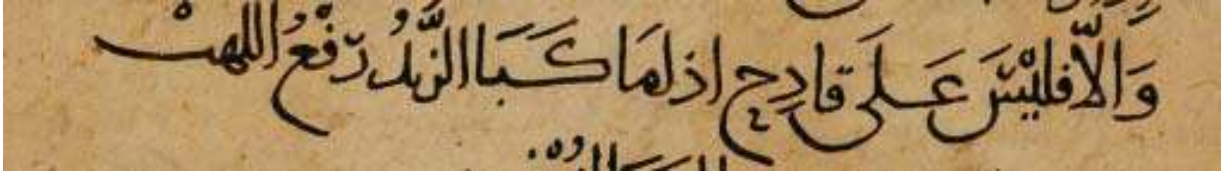 وَالّا فليْسَ عَلَى قادِحٍ اذا مَا كَبَا الزّندُ رَفْعُ اللهبْ